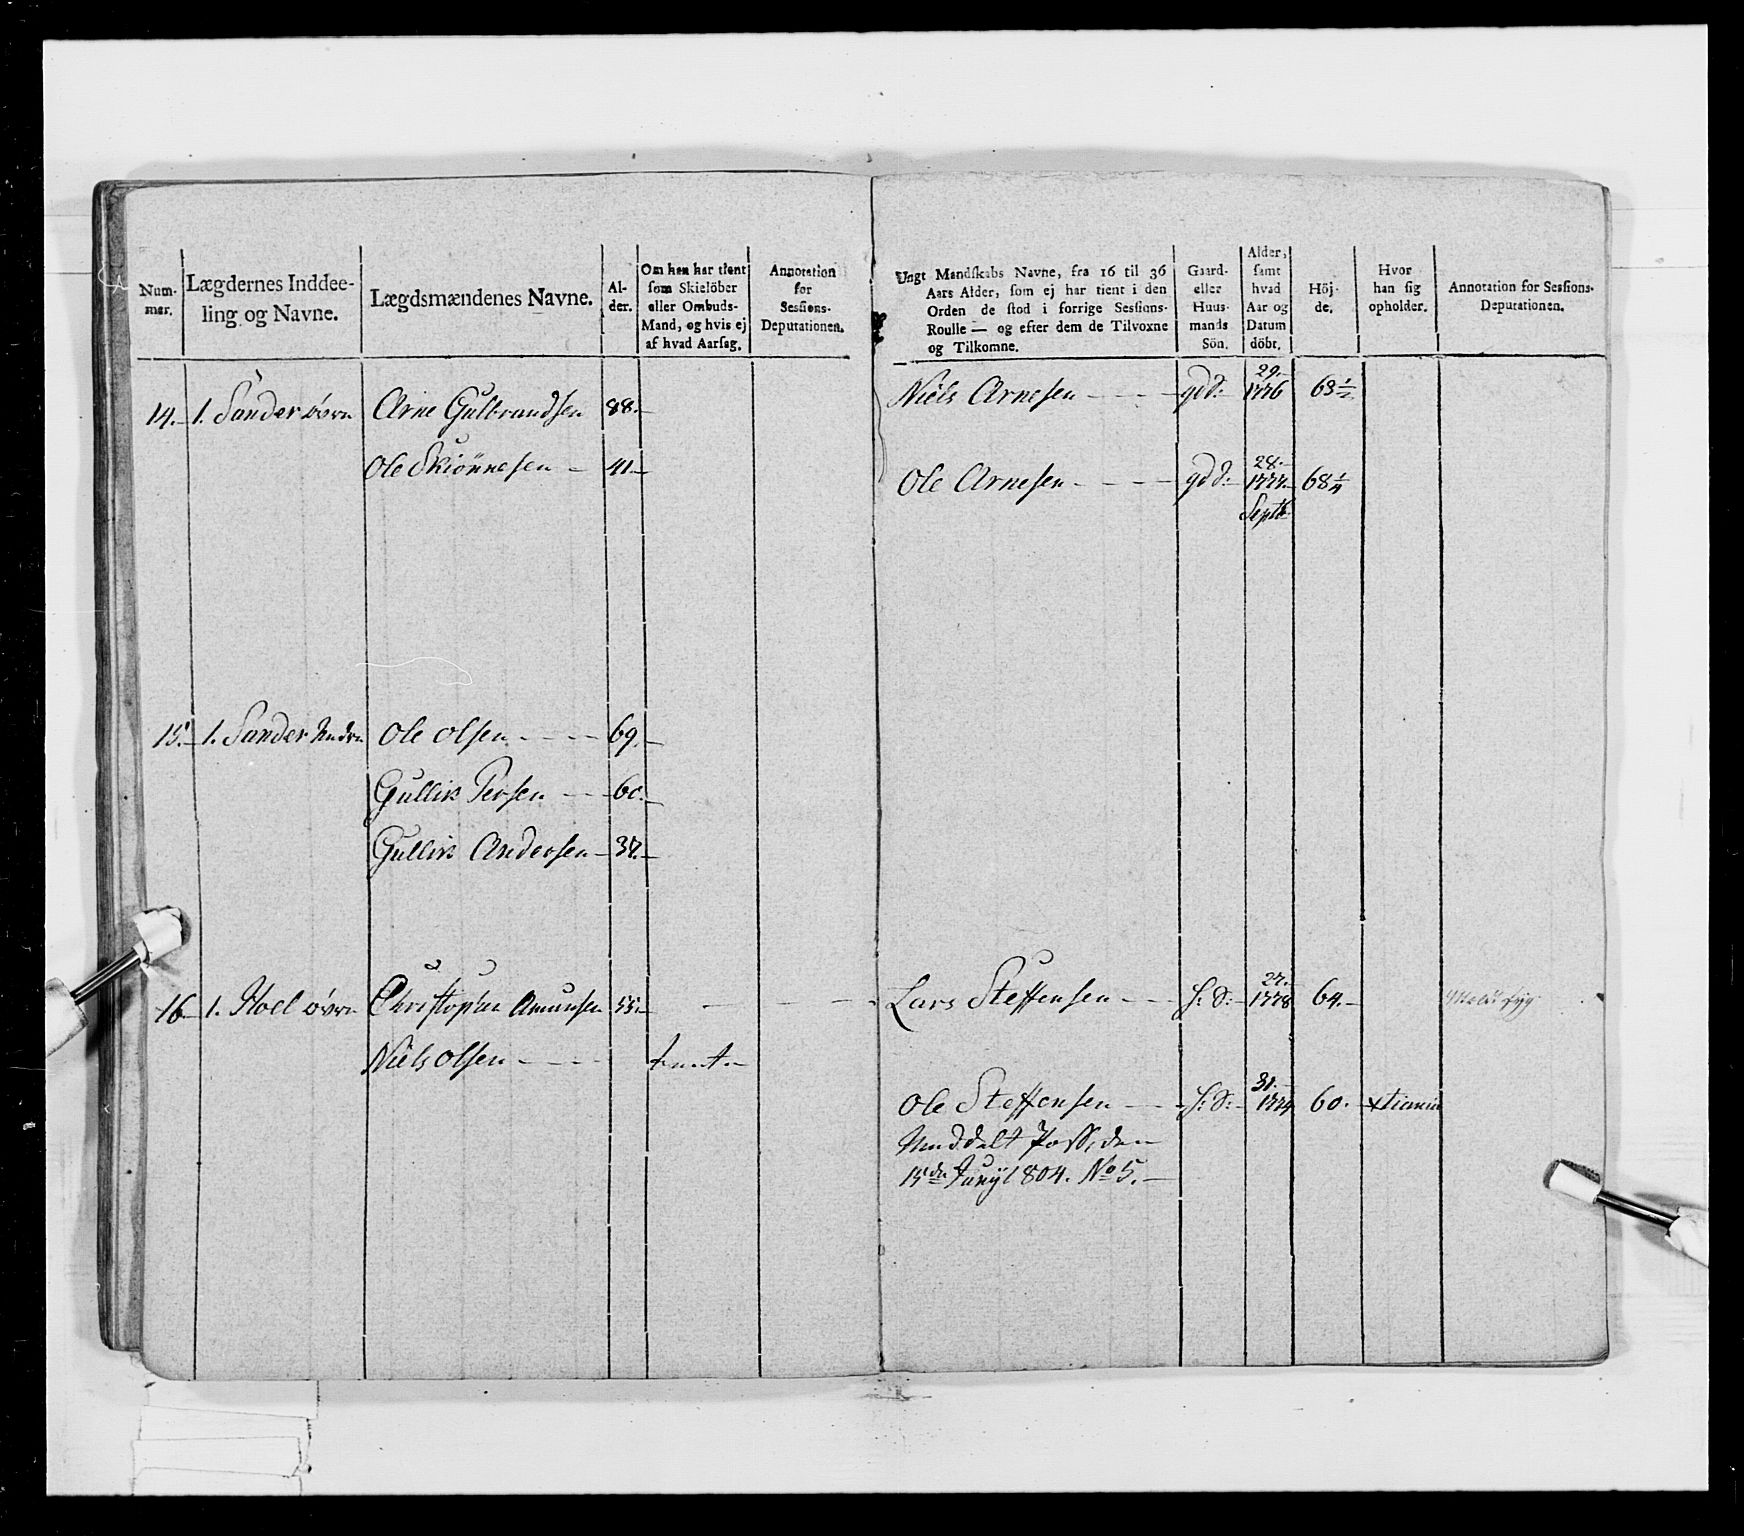 Num-
mer.
Lægdernes Inddee-
ling og Navne.
Lægdsmændenes Navne.
Al-
der.
Om han har tient
som Skielöber
eller Ombuds-
Mand, og hvis ej
af hvad Aarsag.
Annotation
for
Sessions-
Deputationen.
14. 1. Sander øvre Arne Gulbrandsen 88.
Ole Skiönnesen - 41
15. 1. Sander Nedre Ole Olsen - - - 69.
Gullik Persen - - 60.
Gullik Andersen - 37.
16. 1. Hoel øvre Christopher Amunsen 55.
Niels Olsen - - -
Ungt Mandskabs Navne, fra 16 til 36
Aars Alder, som ej har tient i den
Orden de stod i forrige Sessions-
Roulle — og efter dem de Tilvoxne
og Tilkomne.
Gaard-
eller
Huus-
mands
Sön.
Alder,
samt
hvad
Aar og
Datum
döbt.
Höj-
de.
Hvor
han sig
opholder.
Annotation for Sessions-
Deputationen.
29.
Niels Arnesen - - - 1776 63 1/2
28.
Ole Arnesen - - - 1777. 68 1/4
Septb
27.
Lars Steffensen - - H: S: 1778 64.
31.
Ole Steffensen - - H: S: 1774 60. Xtiania
Meddelt Pass, den
15de Junÿ 1804. No 5.